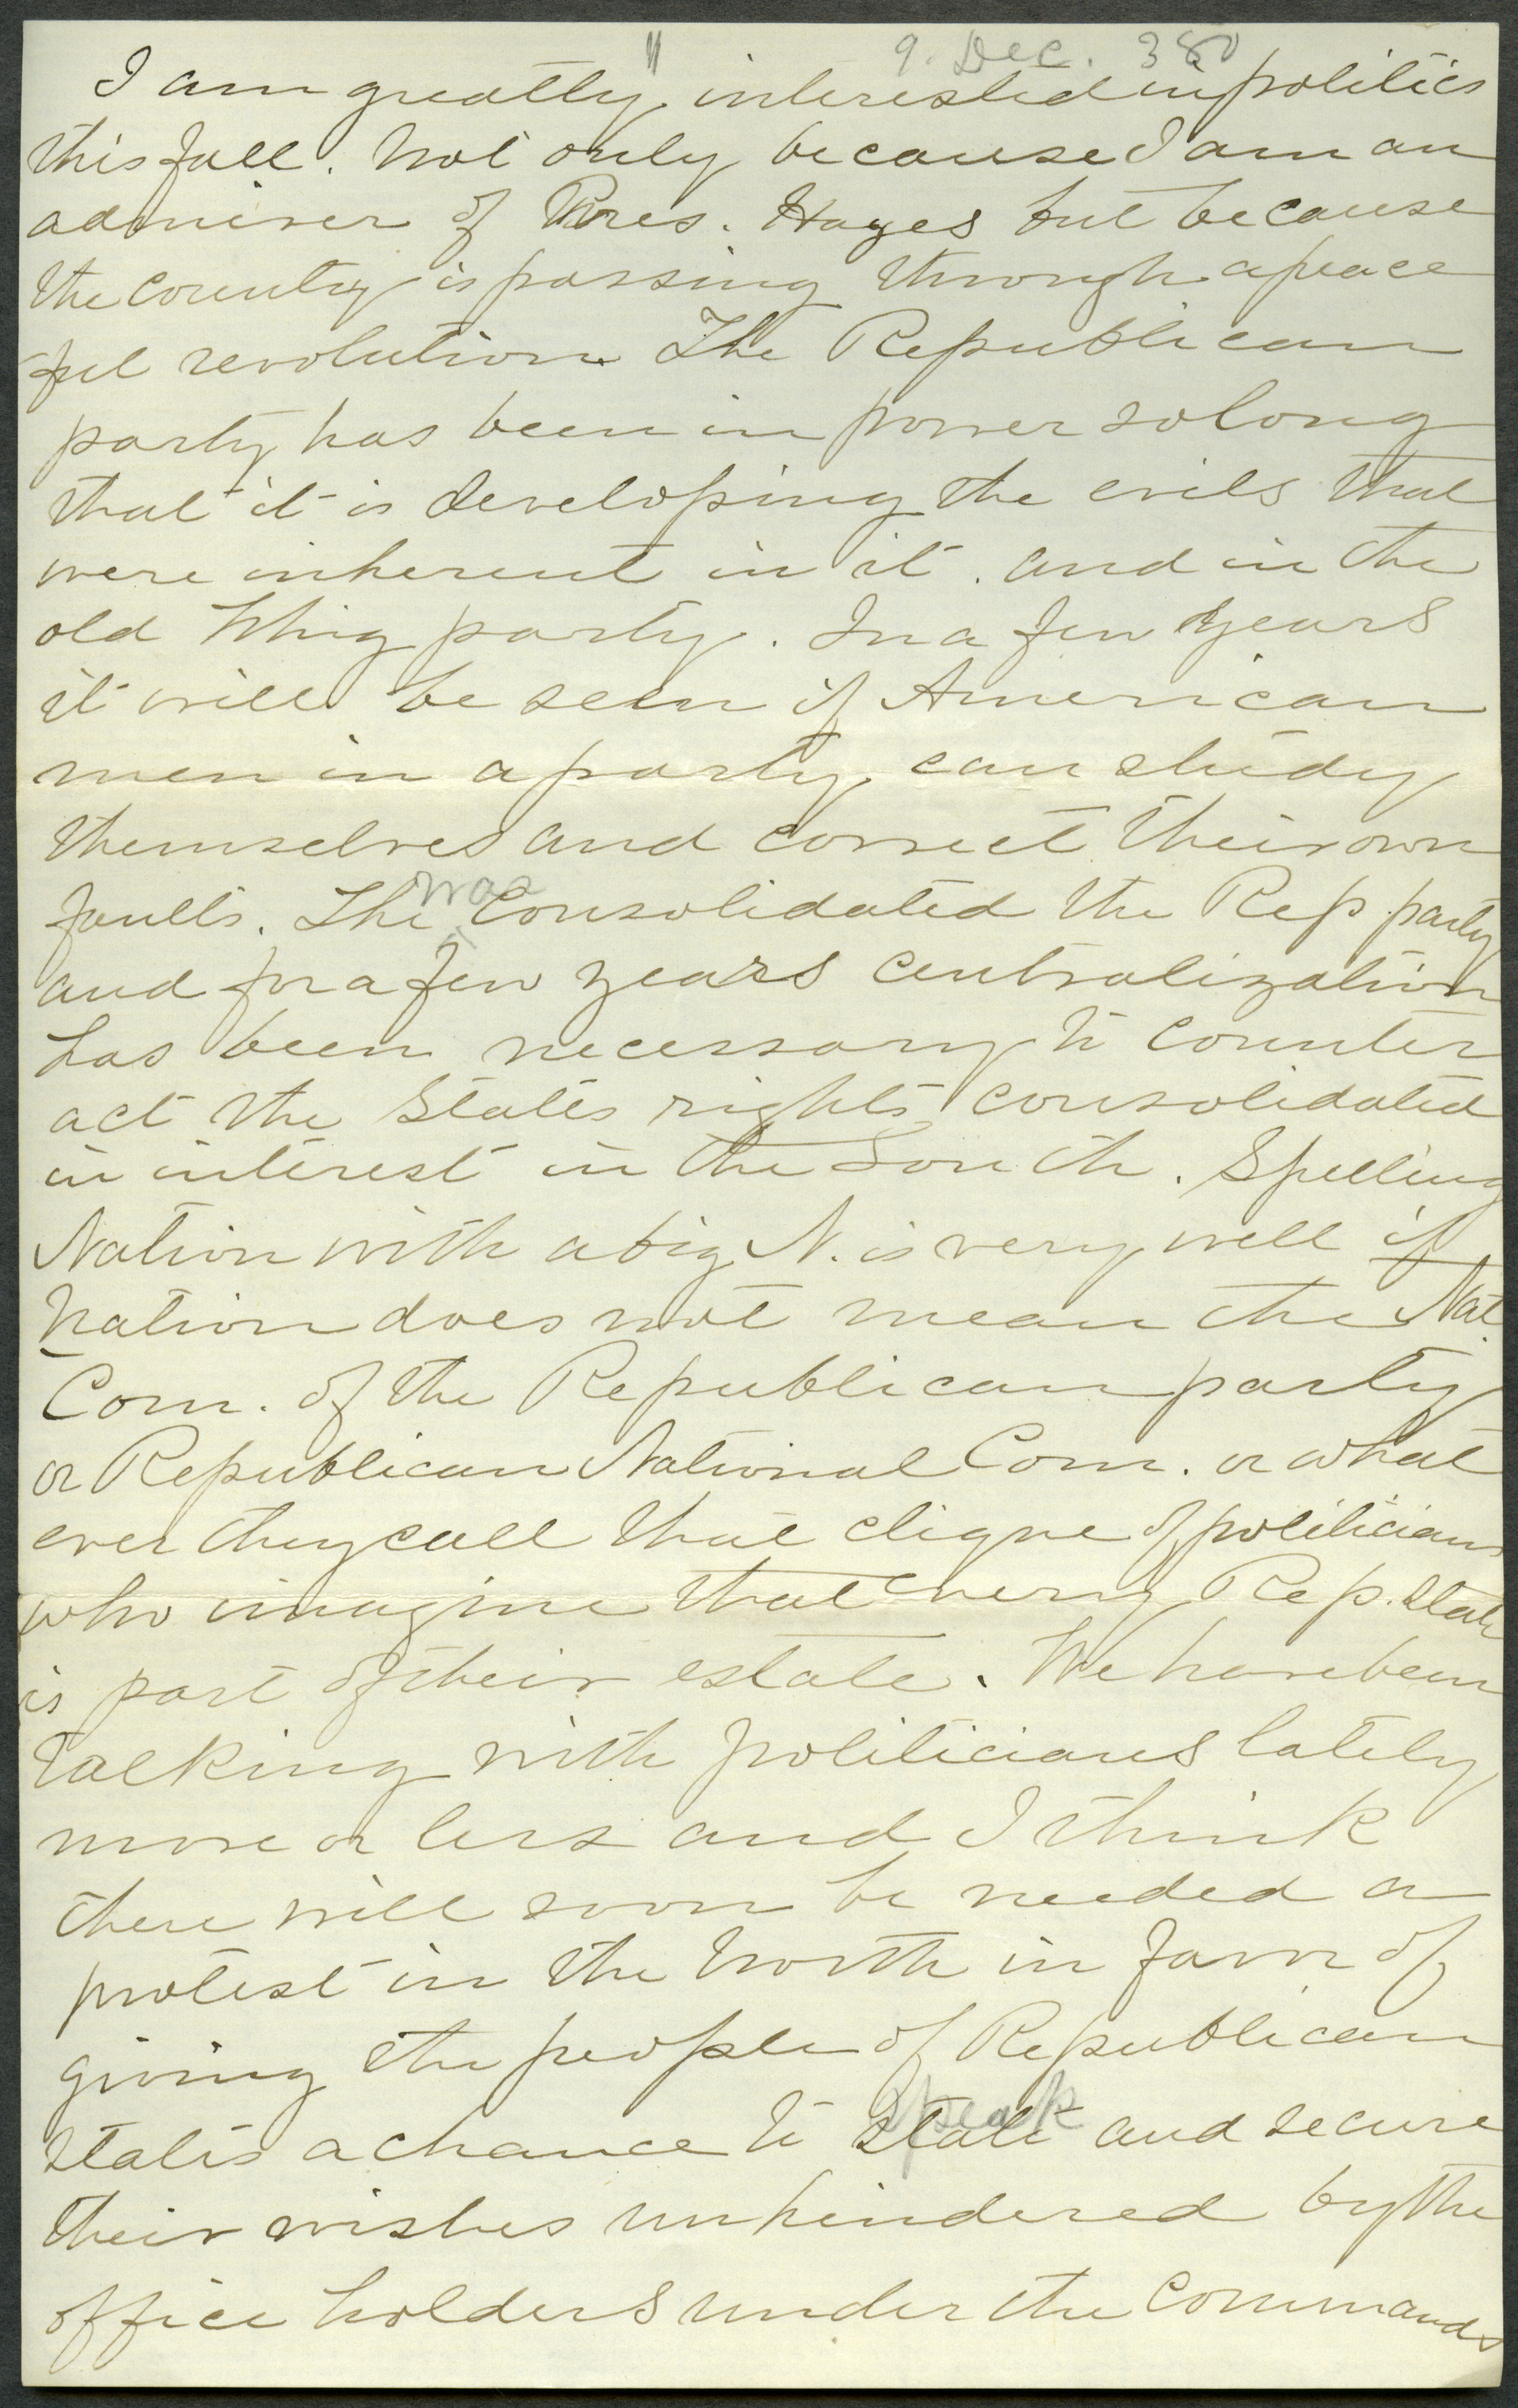 " 9. Dec. 380
I am greatly interested in politics
this fall. Not only because I am an
admirer of Pres. Hayes but because
the country is passing through a peace
ful revolution. The Republican
party has been in power so long
that it is developing the evils that
were inherent in it. and in the
old Whig party. In a few years
it will be seen if American
men in a party, can study
themselves and correct their own
faults. The war Consolidated the Rep. party
and for a few years centralization
has been necessary to counter
act the States rights consolidated
in interest in the South. Spelling
Nation with a big N. is very well if
Nation does not mean the Nat.
Com. of the Republican party
or Republican National Com. or what
ever they call that clique of politicians
who imagine that every Rep. State
is part of their estate. We have been
talking with politicians lately
more or less and I think
there will soon be needed a
protest in the North in favor of
giving the people of Republican
States a chance to state speak and secure
their wishes unhindered by the
office holders under the commands